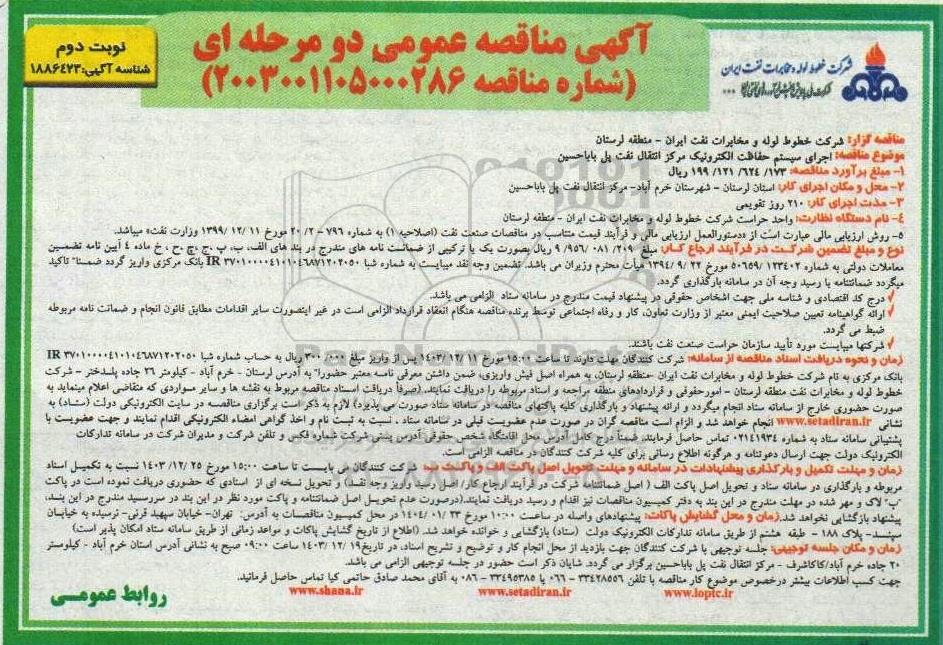 آگهی مناقصه عمومی دو مرحله ای
(شماره مناقصه ۲۰۰۳۰۰۱۱۰۵۰۰۰۲۸۶)
نوبت دوم
شناسه آگهی:۱۸۸۶۴۲۳
شرکت خطوط لوله و مخابرات نفت ایران
مناقصه گزار: شرکت خطوط لوله و مخابرات نفت ایران - منطقه لرستان
موضوع مناقصه: اجرای سیستم حفاظت الکترونیک مرکز انتقال نفت پل باباحسین
۱- مبلغ برآورد مناقصه: ۱۷۳/ ۶۲۴/ ۱۲۱/ ۱۹۹ ریال
۲- محل و مکان اجرای کار: استان لرستان - شهرستان خرم آباد- مرکز انتقال نفت پل باباحسین
۳- مدت اجرای کار: ۲۱۰ روز تقویمی
۴- نام دستگاه نظارت: واحد حراست شرکت خطوط لوله و مخابرات نفت ایران - منطقه لرستان
۵- روش ارزیابی مالی عبارت است از «دستورالعمل ارزیابی مالی و فرآیند قیمت متناسب در مناقصات صنعت نفت (اصلاحیه ۱) به شماره ۷۹۶ - ۲۰/۲ مورخ ۱۱ /۱۲ /۱۳۹۹ وزارت نفت» میباشد.
نوع و مبلغ تضمین شرکت در فرآیند ارجاع کار: مبلغ ۲۰۹/ ۰۸۱ /۹۵۶/ ۹ ریال بصورت یک یا ترکیبی از ضمانت نامه های مندرج در بند های الف، ب، پ ،ج ،چ ،ح ، خ ماده ۴ آیین نامه تضمین
معاملات دولتی به شماره ۱۲۳۴۰۲ /۵۰۶۵۹ مورخ ۲۲ /۹ /۱۳۹۴ هیأت محترم وزیران می باشد. تضمین وجه نقد میبایست به شماره شبا IR ۳۷۰۱۰۰۰۰۴۱۰۱۰۴۶۸۷۱۲۰۲۰۵۰ بانک مرکزی واریز گردد ضمناً تاکید
میگردد ضمانتنامه یا رسید وجه آن در سامانه بارگذاری گردد.
✓ درج کد اقتصادی و شناسه ملی جهت اشخاص حقوقی در پیشنهاد قیمت مندرج در سامانه ستاد الزامی می باشد.
✓ ارائه گواهینامه تعیین صلاحیت ایمنی معتبر از وزارت تعاون، کار و رفاه اجتماعی توسط برنده مناقصه هنگام انعقاد قرارداد الزامی است در غیر اینصورت سایر اقدامات مطابق قانون انجام و ضمانت نامه مربوطه
ضبط می گردد.
✓ شرکتها میبایست مورد تأیید سازمان حراست صنعت نفت باشند.
زمان و نحوه دریافت اسناد مناقصه از سامانه: شرکت کنندگان مهلت دارند تا ساعت ۱۵:۰۰ مورخ ۱۱ /۱۲ /۱۴۰۳ پس از واریز مبلغ ۳۰۰٫۰۰۰ ریال به حساب شماره شبا IR ۳۷۰۱۰۰۰۰۴۱۰۱۰۴۶۸۷۱۲۰۲۰۵۰
بانک مرکزی به نام شرکت خطوط لوله و مخابرات نفت ایران -منطقه لرستان، به همراه اصل فیش واریزی، ضمن داشتن معرفی نامه معتبر حضوراً به آدرس لرستان - خرم آباد - کیلومتر ۲۶ جاده پلدختر - شرکت
خطوط لوله و مخابرات نفت منطقه لرستان - امورحقوقی و قراردادهای منطقه مراجعه و اسناد مربوطه را دریافت نمایند. (صرفاً دریافت اسناد مناقصه مربوط به نقشه ها و سایر مواردی که متقاضی اعلام مینماید به
صورت حضوری خارج از سامانه ستاد انجام میگردد و ارائه پیشنهاد و بارگذاری کلیه پاکتهای مناقصه در سامانه ستاد صورت می پذیرد) لازم به ذکر است برگزاری مناقصه در سایت الکترونیکی دولت (ستاد) به
نشانی www.setadiran.ir انجام خواهد شد و الزام است مناقصه گران در صورت عدم عضویت قبلی در سامانه ستاد ، نسبت به ثبت نام و اخذ گواهی امضاء الکترونیکی اقدام نمایند و جهت عضویت با
پشتیبانی سامانه ستاد به شماره ۰۲۱۴۱۹۳۴ تماس حاصل فرمایند. ضمناً درج کامل آدرس محل اقامتگاه شخص حقوقی، آدرس پستی شرکت، شماره فکس و تلفن شرکت و مدیران شرکت در سامانه تدارکات
الکترونیک دولت جهت ارسال دعوتنامه و هرگونه اطلاع رسانی برای کلیه شرکت کنندگان در مناقصه الزامی است.
زمان و مهلت تکمیل و بارگذاری پیشنهادات در سامانه و مهلت تحویل اصل پاکت الف و پاکت ب: شرکت کنندگان می بایست تا ساعت ۱۵:۰۰ مورخ ۲۵ /۱۲ /۱۴۰۳ نسبت به تکمیل اسناد
مربوطه و بارگذاری در سامانه ستاد و تحویل اصل پاکت الف ( اصل ضمانتنامه شرکت در فرآیند ارجاع کار/ واریز وجه نقد) و تحویل نسخه ای از اسنادی که حضوری دریافت نموده است در پاکت
"ب" لاک و مهر شده در مهلت مندرج در این بند به دفتر کمیسیون مناقصات نیز اقدام و رسید دریافت نمایند.(درصورت عدم تحویل اصل ضمانتنامه و پاکت مورد نظر در این بند در سررسید مندرج در این بند،
پیشنهاد بازگشایی نخواهد شد. زمان و محل گشایش پاکات: پیشنهادهای واصله در ساعت ۱۰:۰۰ مورخ ۲۳ /۰۱ /۱۴۰۴ در محل کمیسیون مناقصات به آدرس: تهران- خیابان سپهبد قرنی- نرسیده به خیابان
سپند- پلاک ۱۸۸ - طبقه هشتم از طریق سامانه تدارکات الکترونیک دولت (ستاد) بازگشایی و خوانده خواهد شد. (اطلاع از تاریخ گشایش پاکات و مواعد زمانی از طریق سامانه ستاد امکان پذیر است)
زمان و مکان جلسه توجیهی: جلسه توجیهی با شرکت کنندگان جهت بازدید از محل انجام کار و توضیح و تشریح اسناد، در تاریخ ۱۹ /۱۲ /۱۴۰۳ ساعت ۰۹:۰۰ صبح به نشانی آدرس استان خرم آباد - کیلومتر
۲۰ جاده خرم آباد/کاکاشرف - مرکز انتقال نفت پل باباحسین برگزار می گردد. شایان ذکر است حضور در جلسه توجیهی الزامی می باشد.
جهت کسب اطلاعات بیشتر درخصوص موضوع کار مناقصه با تلفن ۳۳۴۲۸۵۵۶ - ۰۶۶ یا ۳۳۴۹۵۳۸۵ - ۰۸۶ به آقای محمد صادق حاتمی کیا تماس حاصل فرمائید.
www.shana.ir www.setadiran.ir www.ioptc.ir
روابط عمومی